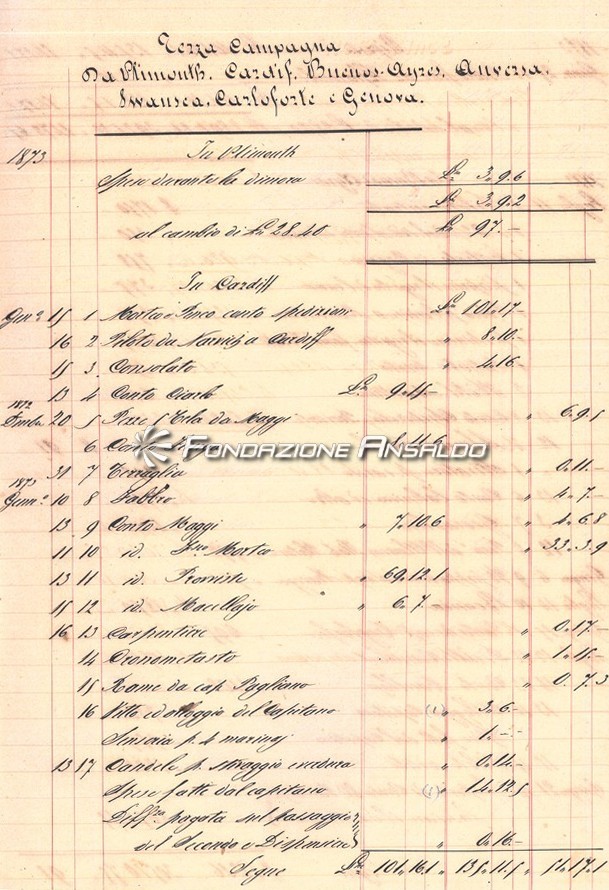 Terza Campagna
Da Plimouth, Cardif, Buenos-Ayres, Anversa,
Swansea, Carloforte e Genova.
1873
In Plimouth
Spese durante la dimora Ls. 3. 9. 6
Ls. 3. 9. 2
al cambio di Ln 28.40 Ln 97.-
In Cardiff
Gen.o 15 1 Morta e Porco conto spedizioni Ls. 101. 17.-
16 2 Piloto da a Cardiff " 8. 10.-
15 3 Consolato " 4. 16.-
13 4 Conto Ls. 9. 15.-
1872
Dmbe 20 5 Pezze 5 Tela da Maggi " 6. 9. 5
6 Conto 1. 11. 6
FONDAZIONE ANSALDO
31 7 Terraglia " 0. 11.-
1873
Genn.o 10 8 Fabbro " 4. 7.-
13 9 Conto Maggi " 7. 10. 6 " 4. 6. 8
11 10 id. Morta " 33. 3. 9
13 11 id. Provviste " 69. 12. 1
15 12 id. Macellajo " 6. 7.-
16 13 Carpentiere " 0. 17.-
14 Cronometasto " 1. 15.-
15 Rame da cap. Pagliano " 0. 7. 3
16 Vitto ed alloggio del Capitano (1) " 3. 6.-
Senseria p. 4 marinaj " 1.-.-
13 17 Candele p. " 0. 14.-
Spese fatte dal capitano (1) " 14. 12. 5
Diff.za pagata sul passaggio
del Secondo e Dispensiere " 0. 16.-
Segue Ls. 101. 16. 1 " 135. 11. 5 " 51. 17. 1